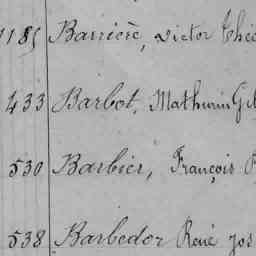 1185 Barrière, Victor Théo
433 Barbot, Mathurin Gil
530 Barbier, François
538 Barbedor René Jos